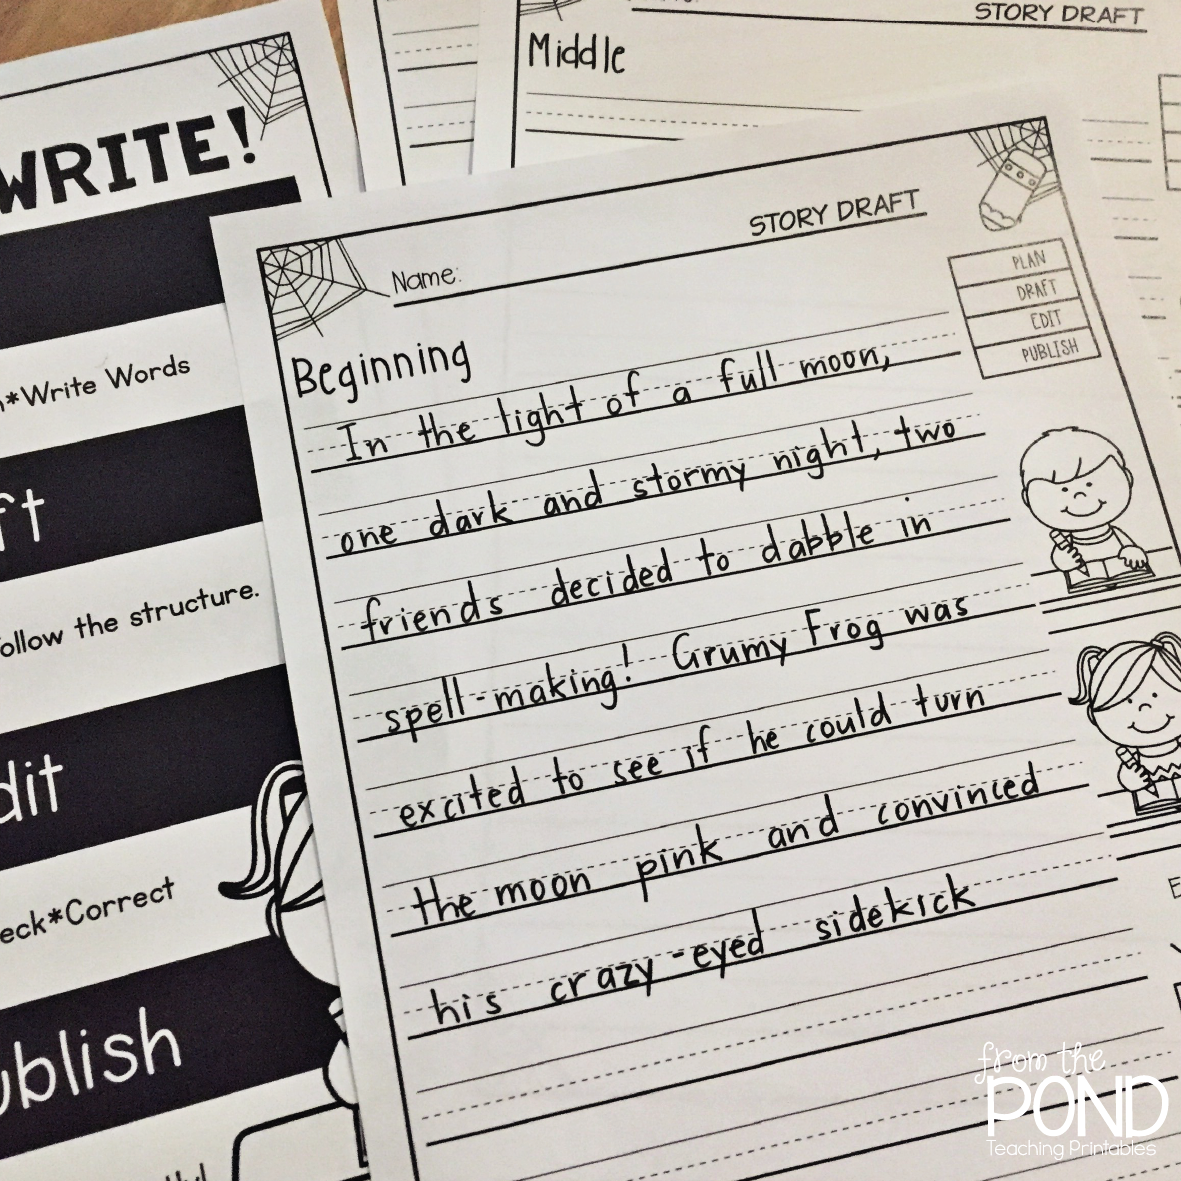 STORY DRAFT
Middle
WRITE!
*Write Words
follow the structure.
*Correct
STORY DRAFT
Name:
PLAN
DRAFT
EDIT
PUBLISH
Beginning
In the light of a full moon,
one dark and stormy night, two
friends decided to dabble in
spell-making! Grumy Frog was
excited to see if he could turn
the moon pink and convinced
his crazy-eyed sidekick
from the
POND
Teaching Printables